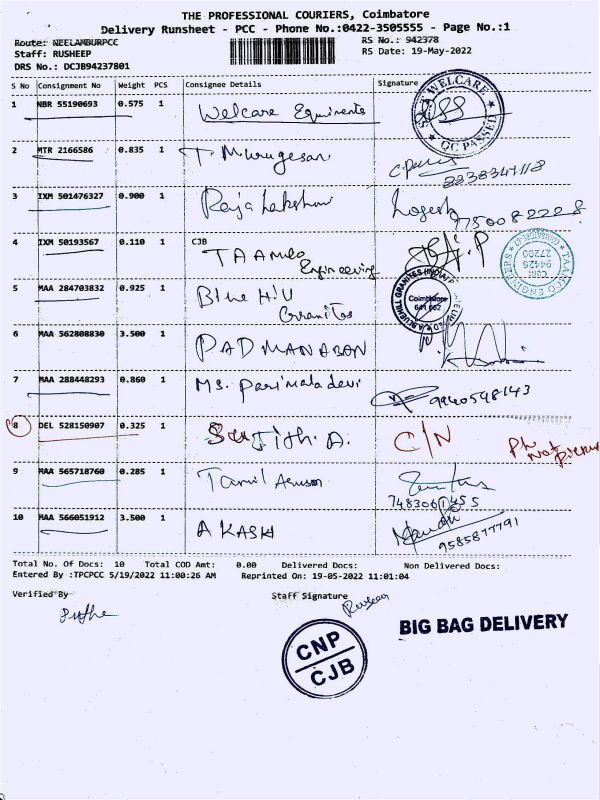 THE PROFESSIONAL COURIERS, Coimbatore
Delivery Runsheet - PCC - Phone No.:0422-3505555 - Page No.:1
Route: NEELAMBURPCC RS No.: 942378
Staff: RUSHEEP RS Date: 19-May-2022
DRS No.: DCJB94237801
S No Consignment No Weight PCS Consignee Details Signature
1 NBR 55190693 0.575 1 Welcare Equipments
WELCARE QC PASSED
2 MTR 2166586 0.835 1 T Murugesan
8238347118
3 IXM 501476327 0.900 1 Raja Lakshmi Logesh
9750082228
4 IXM 50193567 0.110 1 CJB
TAAMCO
Engineering
TAAMCO ENGINEERS
94426
27200
5 MAA 284703832 0.925 1 Blue Hill
Granites
BLUEHILL GRANITES (INDIA)
Coimbatore
641 062
6 MAA 562808830 3.500 1 PADMANABON
7 MAA 288448293 0.860 1 Ms. Parimaladevi 9940548143
8 DEL 528150907 0.325 1 Sujith. A. C/N
Ph Not
9 MAA 565718760 0.285 1 Tamil
7483061455
10 MAA 566051912 3.500 1 AKASH
9585877791
Total No. Of Docs: 10 Total COD Amt: 0.00 Delivered Docs: Non Delivered Docs:
Entered By :TPCPCC 5/19/2022 11:00:26 AM Reprinted On: 19-05-2022 11:01:04
Verified By Staff Signature
CNP
CJB
BIG BAG DELIVERY